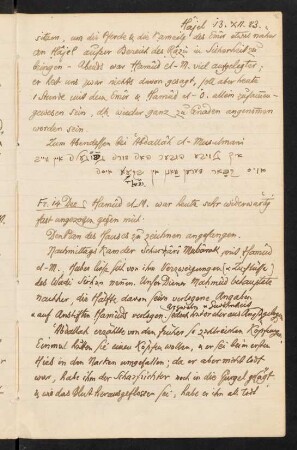 Hâjel 13. XII. 83.
sitzen, um die Herde & die Kameele des Emîr etwas näher
an Hâjel außer Bereich des Râzû in Sicherheit zu
bringen - Abends war Hamûd el-M. viel aufgelegter,
er hat uns zwar nichts davon gesagt, soll aber heute
1 Stunde mit dem Emîr & Hamûd el-O. allein zusammen-
gewesen sein, & wieder ganz zu Gnaden angenommen
worden sein.
Zum Abendessen bei ʿAbdallâh el-Muslimâni
Fr. 14 Dec. Hamûd el-M. war heute sehr widerwärtig
fast ungezogen gegen mich.
Den Plan des Hauses zu zeichnen angefangen.
Nachmittags kam der Scherâri Mubârak, mit Hamûd
el-M. Ueber ließ ich vor ihm Verzerrungen
des Wadi Sirhân nennen. Unser Diener Mahmûd behauptete
nachher, die Hälfte davon seien verlogene Angaben
auf Anstiften Hamûds verlogen.
ʿAbdallah erzählte von den früher so zahlreichen Köpfungen.
Einmal hätten sie einen Köpfen wollen, & er sei beim ersten
Hieb in den Nacken umgefallen; da er aber nicht tot
war, habe ihm der Scharfrichter noch in die Gurgel gesägt,
& wie das Blut herausgeflossen sei, habe er ihn als tot